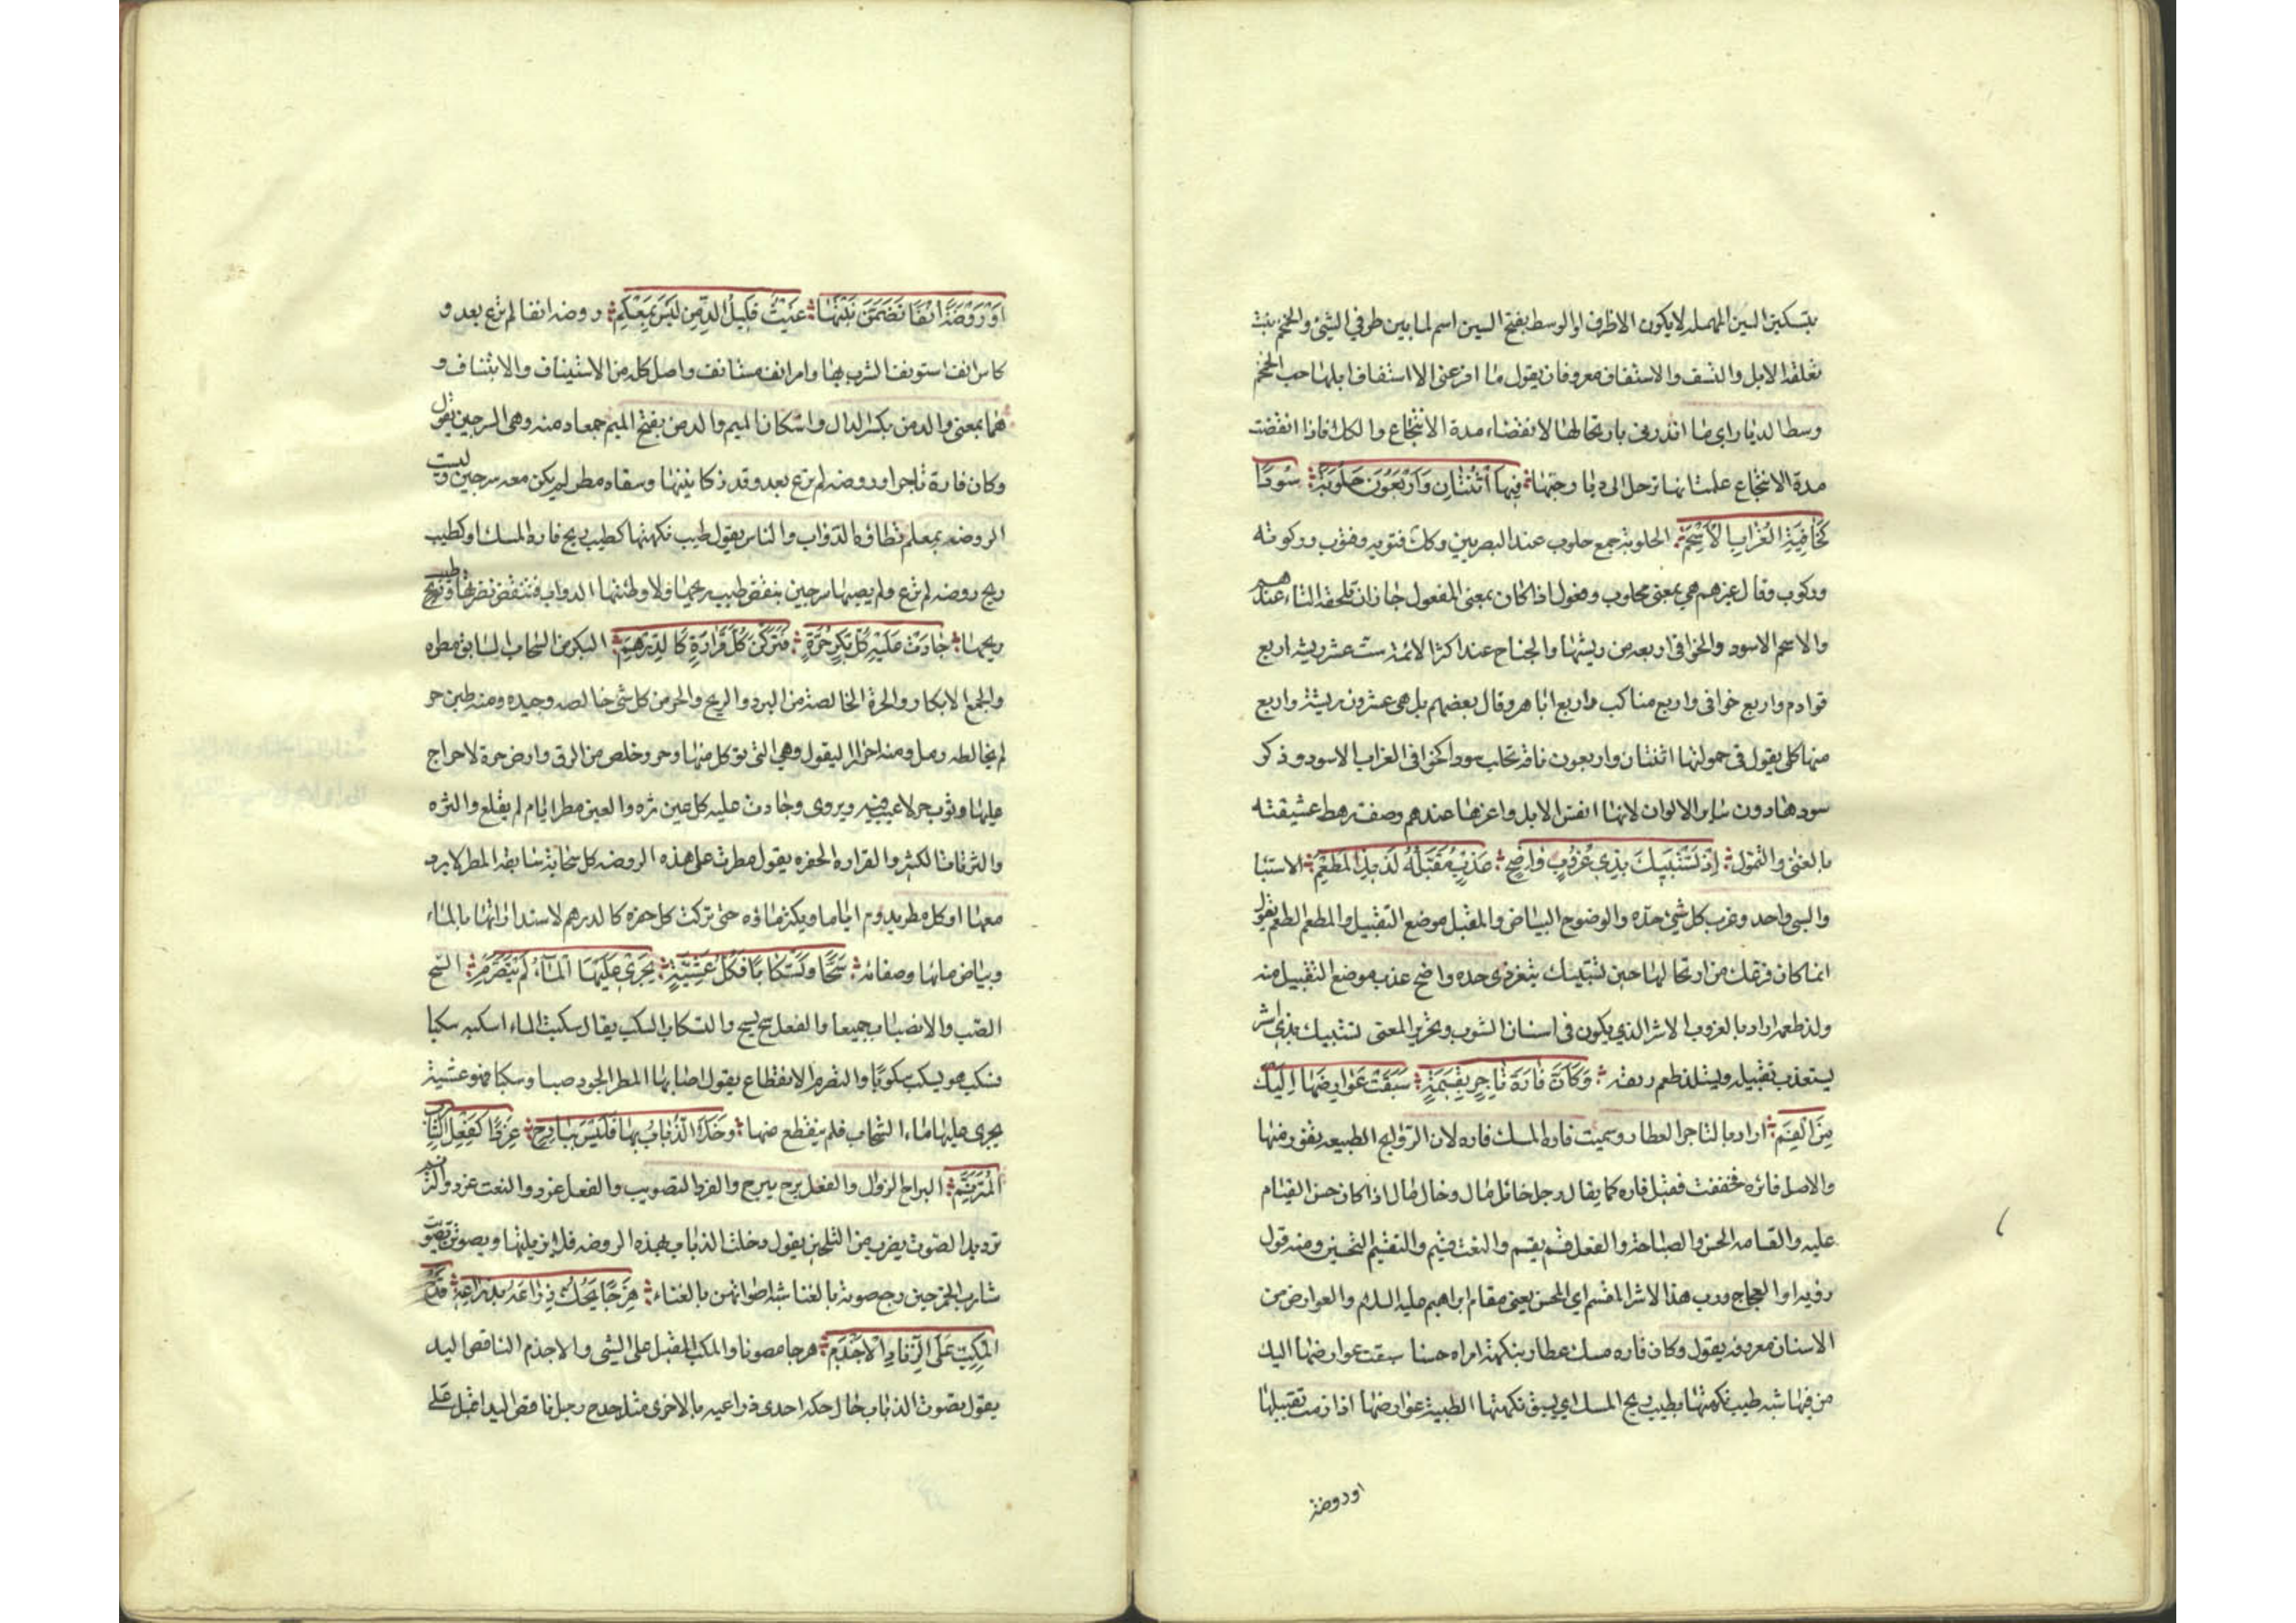 بتسكين السين المهمله لا يكون الا ظرفا والوسط بفتح السين اسم لما بين طرفي الشئ والخمخم نبت
تعلفه الابل والنسف والاستفاف معروفان يقول ما افزعنى الا استفاف ابلها حب الخمخم
وسط الديار اي ما انذرنى بارتحالها الا نقضاء مدة الانتجاع والكلا فاذا انقضت
مدة الانتجاع علمت انها ترحل الى ديار حيها فِيهَا اثْنَتَانِ وَاَرْبَعُونَ حَلُوبَةً سُودًا
كَخَافِيَةِ الغُرَابِ الْاَسْحَمِ الحلوبة جمع حلوب عند البصريين وكك قتوبه وقتوب وركوبه
وركوب وقال غيرهم هي بمعنى محلوب وفعول اذا كان بمعنى المفعول جاز ان تلحقه التاء عندهم
والاسحم الاسود والخوافى اربعه من ريشها والجناح عند اكثر الائمه ست عشر ريشه اربع
قوادم واربع خوافى واربع مناكب واربع اباهر وقال بعضهم بل هى عشرون ريشة واربع
منها كلى يقول فى حمولتها اثنتان واربعون ناقة تحلب سودا كخوافى الغراب الاسود وذكر
سودها دون ساير الالوان لانها انفس الابل واعزها عندهم وصفت رهط عشيقته
بالغنى والتمول اِذْ تَسْتَبِيكَ بِذِى غُرُوبٍ وَاضِحٍ عَذْبٍ مُقَبَّلُهُ لَذِيذِ الْمَطْعَمِ الاستبا
والسبى واحد وغرب كل شئ حده والوضوح البياض والمقبل موضع التقبيل والمطعم الطعم يقول
انما كان فزعك من ارتحالها حين تستبيك بثغر ذى حده واضح عذب موضع التقبيل منه
ولذ طعمه اراد بالغروب الاشر الذي يكون فى اسنان الشوب وتحرير المعنى تستبيك بذى اشر
يستعذب تقبيله ويستلذ طعم ريقه وَكَاَنَّ فَارَةَ تَاجِرٍ بِقَسِيمَةٍ سَبَقَتْ عَوَارِضَهَا اِلَيْكَ
مِنَ الْفَمِ اراد بالتاجر العطار وسميت فاره المسك فاره لان الروايح الطيبه تفور منها
والاصل فائره فخففت فقيل فاره كما يقال رجل خائل مال وخال مال اذا كان حسن القيام
عليه والقسامه الحسن والصباحة والفعل قسم يقسم والنعت قسيم والتقسيم التحسين ومنه قول
رؤبه او العجاج ورب هذا الاثر المقسم اي المحسن يعنى مقام ابراهيم عليه السلام والعوارض من
الاسنان معروفه يقول وكان فاره مسك عطار بنكهة امراه حسنا سبقت عوارضها اليك
من فيها شبه طيب نكهتها بطيب ريح المسك اي يسبق نكهتها الطيبة عوارضها اذا رمت تقبيلها
اوروضة
اَوْ رَوْضَةً اُنُفًا تَضَمَّنَ نَبْتَهَا غَيْثٌ قَلِيلُ الدِّمْنِ لَيْسَ بِمَعْلَمِ روضه انفا لم ترع بعد و
كاس انف استونف الشرب بها وامر انف مستانف واصل كله من الاستيناف والايتناف و
هما بمعنى والدمن بكسر الدال واسكان الميم والدمن بفتح الميم جمعا دمنه وهى السرجين يقول
وكان فارة تاجر او روضه لم ترع بعد وقد زكا نبتها وسقاه مطر لم يكن معه سرجين وليست
الروضه بمعلم تطاؤه الدواب والناس يقول طيب نكهتها كطيب ريح فارة المسك او كطيب
ريح روضه لم ترع ولم يصبها سرجين ينقض طيب ريحها ولا وطئتها الدواب فتنقض نضرتها وطيب
ريحها جَادَتْ عَلَيْهِ كُلُّ بِكْرٍ حُرَّةٍ فَتَرَكْنَ كُلَّ قَرَارَةٍ كَالدِّرْهَمِ البكر من السحاب السابق مطره
والجمع الابكار والحرة الخالصة من البرد والريح والحر من كل شى خالصه وجيده ومنه طين حر
لم يخالطه رمل ومنه احرار البقول وهي التى تؤكل منها وحر وخلص من الرق وارض حرة لا خراج
عليها وثوب حر لا عيب فيه ويروى وجادت عليه كل عين ثره والعين مطر ايام لم يقلع والثره
والثرثاره الكثير والقراره الحفره يقول مطرت على هذه الروضه كل سحابة سابقه المطر لا برد
معها او كل مطر يدوم اياما ويكثر ماؤه حتى تركت كل حفره كالدرهم لاستدارتها بالماء
وبياض مائها وصفائه سَحًّا وَتَسْكَابًا فَكُلَّ عَشِيَّةٍ يَجْرِى عَلَيْهَا الْمَاءُ لَمْ يَتَصَرَّمِ السح
الصب والانصباب جميعا والفعل سح يسح والتسكاب السكب يقال سكبت الماء اسكبه سكبا
فسكب هو يسكب سكوبا والتصرم الانقطاع يقول اصابها المطر الجود صبا وسكبا فهو عشية
يجرى عليها ماء السحاب فلم ينقطع عنها وَخَلَا الذُّبَابُ بِهَا فَلَيْسَ بِبَارِحٍ غَرِدًا كَفِعْلِ الشَّارِبِ
الْمُتَرَنِّمِ البراح الزوال والفعل برح يبرح والغرد التصويب والفعل غرد والنعت غرد والترنم
ترديد الصوت بضرب من التلحين يقول وخلت الذباب بهذه الروضه فلا يزيلنها ويصوتن تصويت
شارب الخمر حين رجع صوته بالغنا شبه اصواتهن بالغناء هَزِجًا يَحُكُّ ذِرَاعَهُ بِذِرَاعِهِ قَدْحَ
الْمُكِبِّ عَلَى الزِّنَادِ الْاَجْذَمِ هزجا مصوتا والمكب المقبل على الشى والاجذم الناقص اليد
يقول يصوت الذباب حال حكه احدى ذراعيه بالاخرى مثل قدح رجل ناقص اليد اقبل على